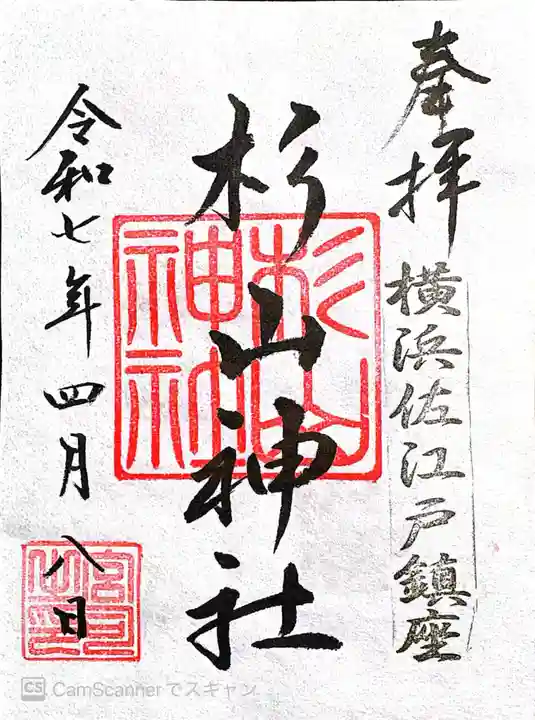 奉拝
横浜佐江戸鎮座
杉山神社
杉山神社
令和七年四月八日
宮司之印
CS CamScannerでスキャン